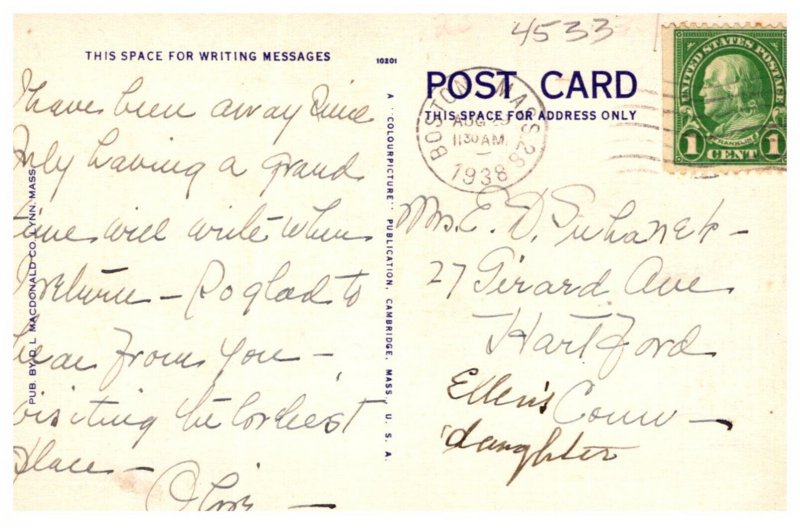 THIS SPACE FOR WRITING MESSAGES
10201
have been away since
July having a grand
time will write when
I return — So glad to
hear from you —
visiting the loveliest
place —
PUB. BY D. L. MACDONALD CO. LYNN, MASS.
A "COLOURPICTURE" PUBLICATION, CAMBRIDGE, MASS., U. S. A.
4533
POST CARD
THIS SPACE FOR ADDRESS ONLY
BOSTON MASS
AUG
11 30 AM
1938
UNITED STATES POSTAGE
FRANKLIN
1 CENT 1
Mrs. E. D. Suhanek —
27 Girard Ave
Hartford
Conn —
Ellen's
daughter